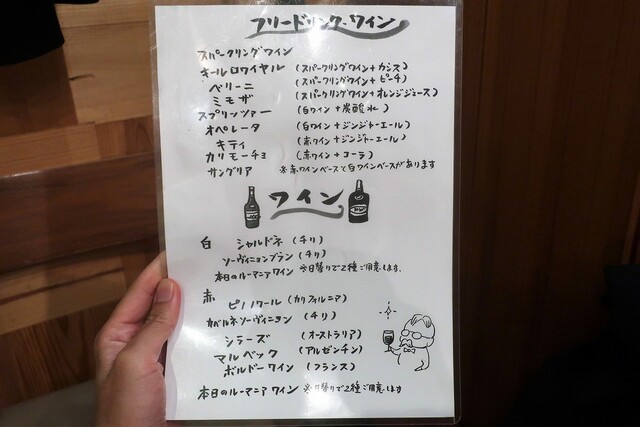 フリードリンク.ワイン
スパークリングワイン
キールロワイヤル (スパークリングワイン+カシス)
ベリーニ (スパークリングワイン+ピーチ)
ミモザ (スパークリングワイン+オレンジジュース)
スプリッツァー (白ワイン+炭酸水)
オペレータ (白ワイン+ジンジャーエール)
キティ (赤ワイン+ジンジャーエール)
カリモーチョ (赤ワイン+コーラ)
サングリア ※赤ワインベースと白ワインベースがあります
ワイン
白 シャルドネ (チリ)
ソーヴィニョンブラン (チリ)
本日のルーマニアワイン ※日替りで2種ご用意します.
赤 ピノノワール (カリフォルニア)
カベルネソーヴィニヨン (チリ)
シラーズ (オーストラリア)
マルベック (アルゼンチン)
ボルドーワイン (フランス)
本日のルーマニアワイン ※日替りで2種ご用意します